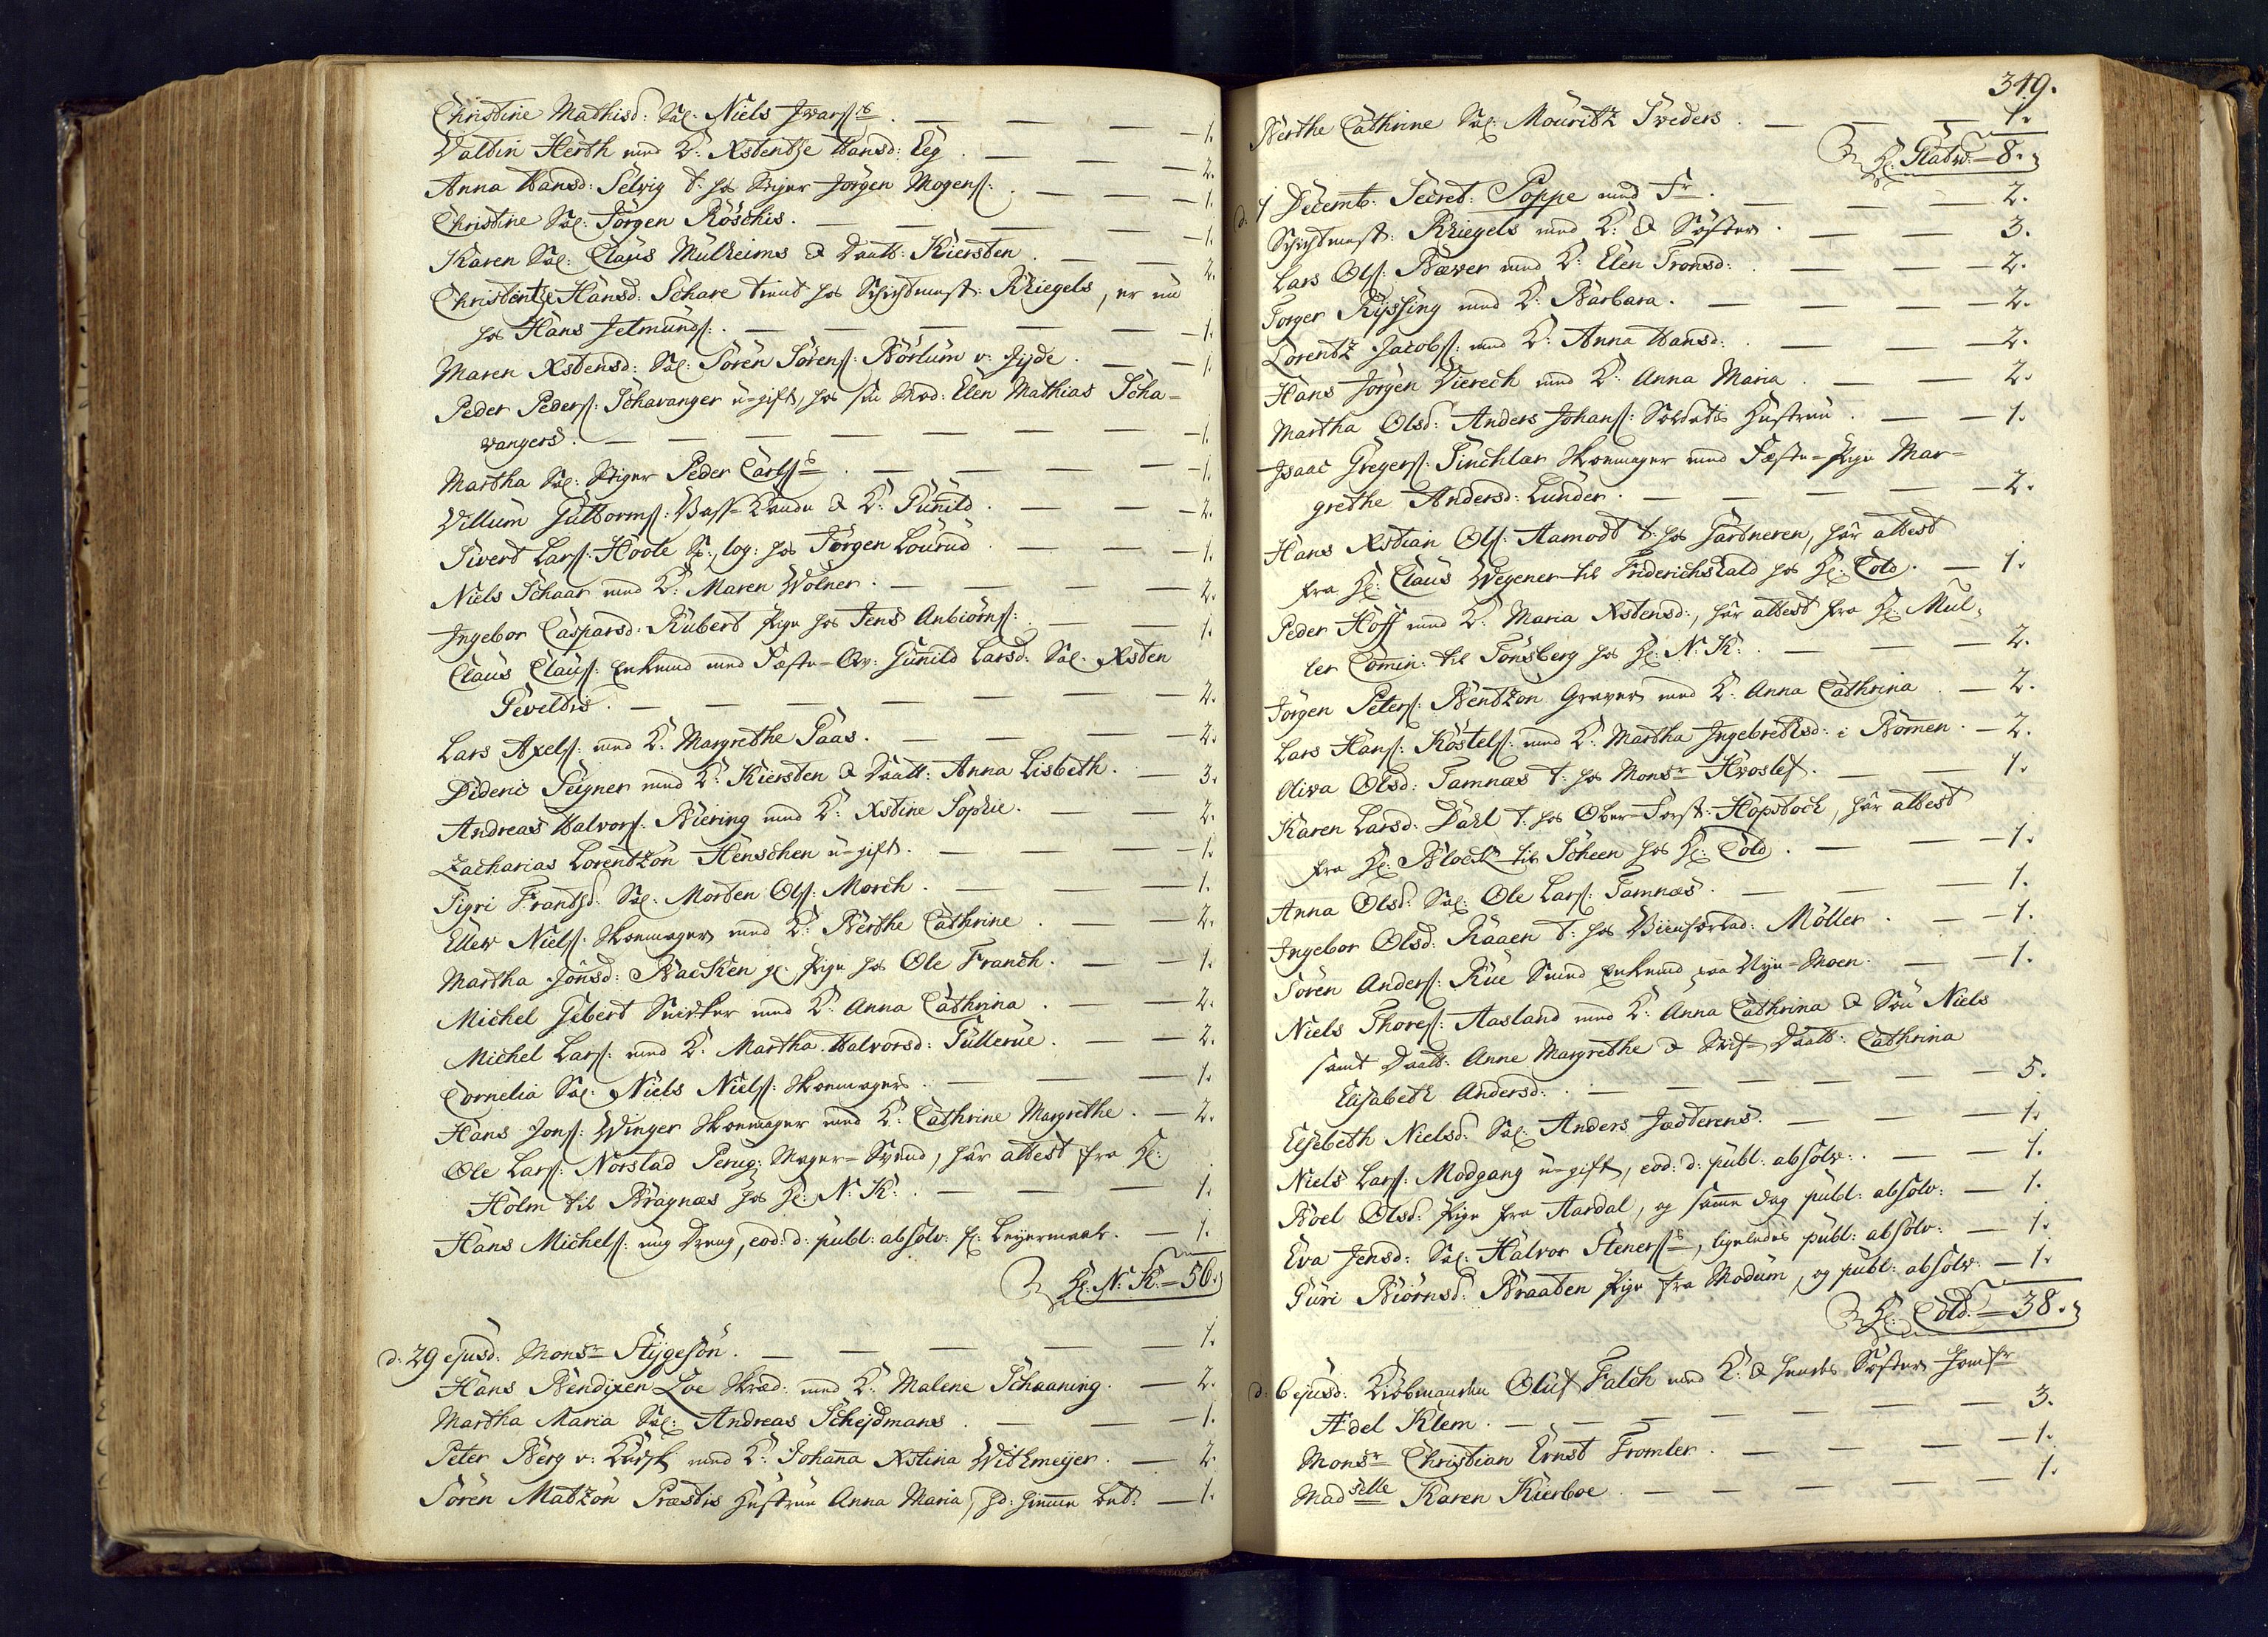 Christine Mathisd: Sal: Niels Jvars͞s. — — — 1.
Valtin Herth med K: Xstentze Hansd: Eeg. — — — 2.
Anna Hansd: Selvig t: hos Stiger Jörgen Mogens: — — — 1.
Christine Sal: Jörgen Röschis. — — — 1.
Karen Sal: Claus Mulheims & Daatt: Kiersten. — — 2.
Christentze Hansd: Schare tient hos Schichtmest: Kriegels, er nu
hos Hans Jelmunds: — — — — — 1.
Maren Xstensd: Sal: Sören Sörens: Börlum v: Jyde. — — 1.
Peder Peders: Schavanger u-gift, hos sin Mod: Elen Mathias Scha=
vangers. — — — — — — — 1.
Martha Sal: Stiger Peder Carls͞s. — — — — 1.
Villum Guttorms: Bass- & K: Gunild. — — — 2.
Sivert Lars: Hoole S:, log: hos Jörgen Lourud. — — — 1.
Niels Schaar med K: Maren Wolner. — — — 2.
Jngebor Caspersd: Rubert Pige hos Jens Anbiörns: — — 1.
Claus Claus: Enkemd med Fæste-Qv: Gunild Larsd: Sal: Xsten
Geveltis. — — — — — — 2.
Lars Axels: med K: Margrethe Paas. — — — 2.
Dideric Seigner med K: Kiersten & Daatt: Anna Lisbeth. — 3.
Andreas Halvors: Biering med K: Xstine Sophie. — — 2.
Zacharias Lorentzon Henschen u-gift. — — — 1.
Sigri Frantzd: Sal: Morten Ols: Morch. — — — 1.
Ellew Niels: Skoemager med K: Berthe Cathrine. — — 2.
Martha Jonsd: Backen gl: Pige hos Ole Franch. — — 1.
Michel Gebert Snidker med K: Anna Cathrina. — — 2.
Michel Lars: med K: Martha Halvorsd: Gullerue. — — 2.
Cornelia Sal: Niels Niels: Skoemagers. — — — 1.
Hans Jons: Winger Skoemager med K: Cathrine Margrethe. — 2.
Ole Lars: Norstad Peruq: Mager-Svend, har attest fra Hr:
Holm til Bragnæs hos Hr: N: K: — — — 1.
Hans Michels: ung Dreng, eod: d: publ: absolv: f: Leyermaal. — 1.
Hr: N: K: = 56.
d: 29 ejusd: Monsr Stygesön. — — — — 1.
Hans Bendixen Loe Skræd: med K: Malene Schaaning. — 2.
Martha Maria Sal: Andreas Schejdmans. — — — 1.
Peter Berg v: med K: Johanna Xstina Withmeyer. — 2.
Sören Matzön Præstis Hustrue Anna Maria, hd: hiemme ber: — 1.
349.
Berthe Cathrine Sal: Mouritz Sveders. — — — 1.
Hr: — 8.
d: 1 Decemb: Secret: Poppe med Fr. — — — 2.
Schichtmest: Kriegels med K: & Söster. — — 3.
Lars Ols: Bæver med K: Elen Tronsd: — — — 2.
Torger Ryssing med K: Barbara. — — — 2.
Lorentz Jacobs: med K: Anna Hansd: — — — 2.
Hans Jörgen Vierech med K: Anna Maria. — — — 2.
Martha Olsd: Anders Johans: Soldatis Hustrue. — — 1.
Jsaac Gregers: Sinchlar Skoemager med Fæste-Pige Mar=
grethe Andersd: Lunder. — — — — 2.
Hans Xstian Ols: Aamodt t: hos Gartneren, har attest
fra Hr: Claus Wegener til Friderichshald hos Hr: Cold. — 1.
Peder Hoff med K: Maria Xstensd:, har attest fra Hr: Mul=
ler Comin: til Tönsberg hos Hr: N: K: — — — 2.
Jörgen Peters: Bentzon Graver med K: Anna Cathrina. — 2.
Lars Hans: Kostels: med K: Martha Jngebretsd: i Bommen. — 2.
Oliva Olsd: Tamnæs t: hos Monsr Hvoslef. — — 1.
Karen Larsd: Dahl t: hos Ober-Forst: Hopstock, har attest
fra Hr: Block til Scheen hos Hr: Cold. — — — 1.
Anna Olsd: Sal: Ole Lars: Tamnæs. — — — 1.
Jngebor Olsd: Raaen t: hos Möller. — — 1.
Sören Anders: Rue Smed Enkemd paa Nye-Moen. — — 1.
Niels Thores: Aasland med K: Anna Cathrina & Sön Niels
samt Daatt: Anne Margrethe & Stif-Daatt: Cathrina
Elisabeth Andersd: — — — — — 5.
Elsebeth Nielsd: Sal: Anders Jæderens. — — — 1.
Niels Lars: Modgang u-gift, eod: d: publ: absolv: — — 1.
Boel Olsd: Pige fra Aardal, og samme dag publ: absolv: — 1.
Eva Jensd: Sal: Halvor Steners͞s, ligeledes publ: absolv: — 1.
Guri Biörnsd: Braaten Pige fra Modum, og publ: absolv: — 1.
Hr: Cold. — 38.
d: 6 ejusd: Kiöbmanden Oluf Falch med K: & hendes Söster Jomfr
Adel Klem. — — — — — — 3.
Monsr Christian Ernst Fromler. — — — — 1.
Madselle Karen Kierboe. — — — — 1.